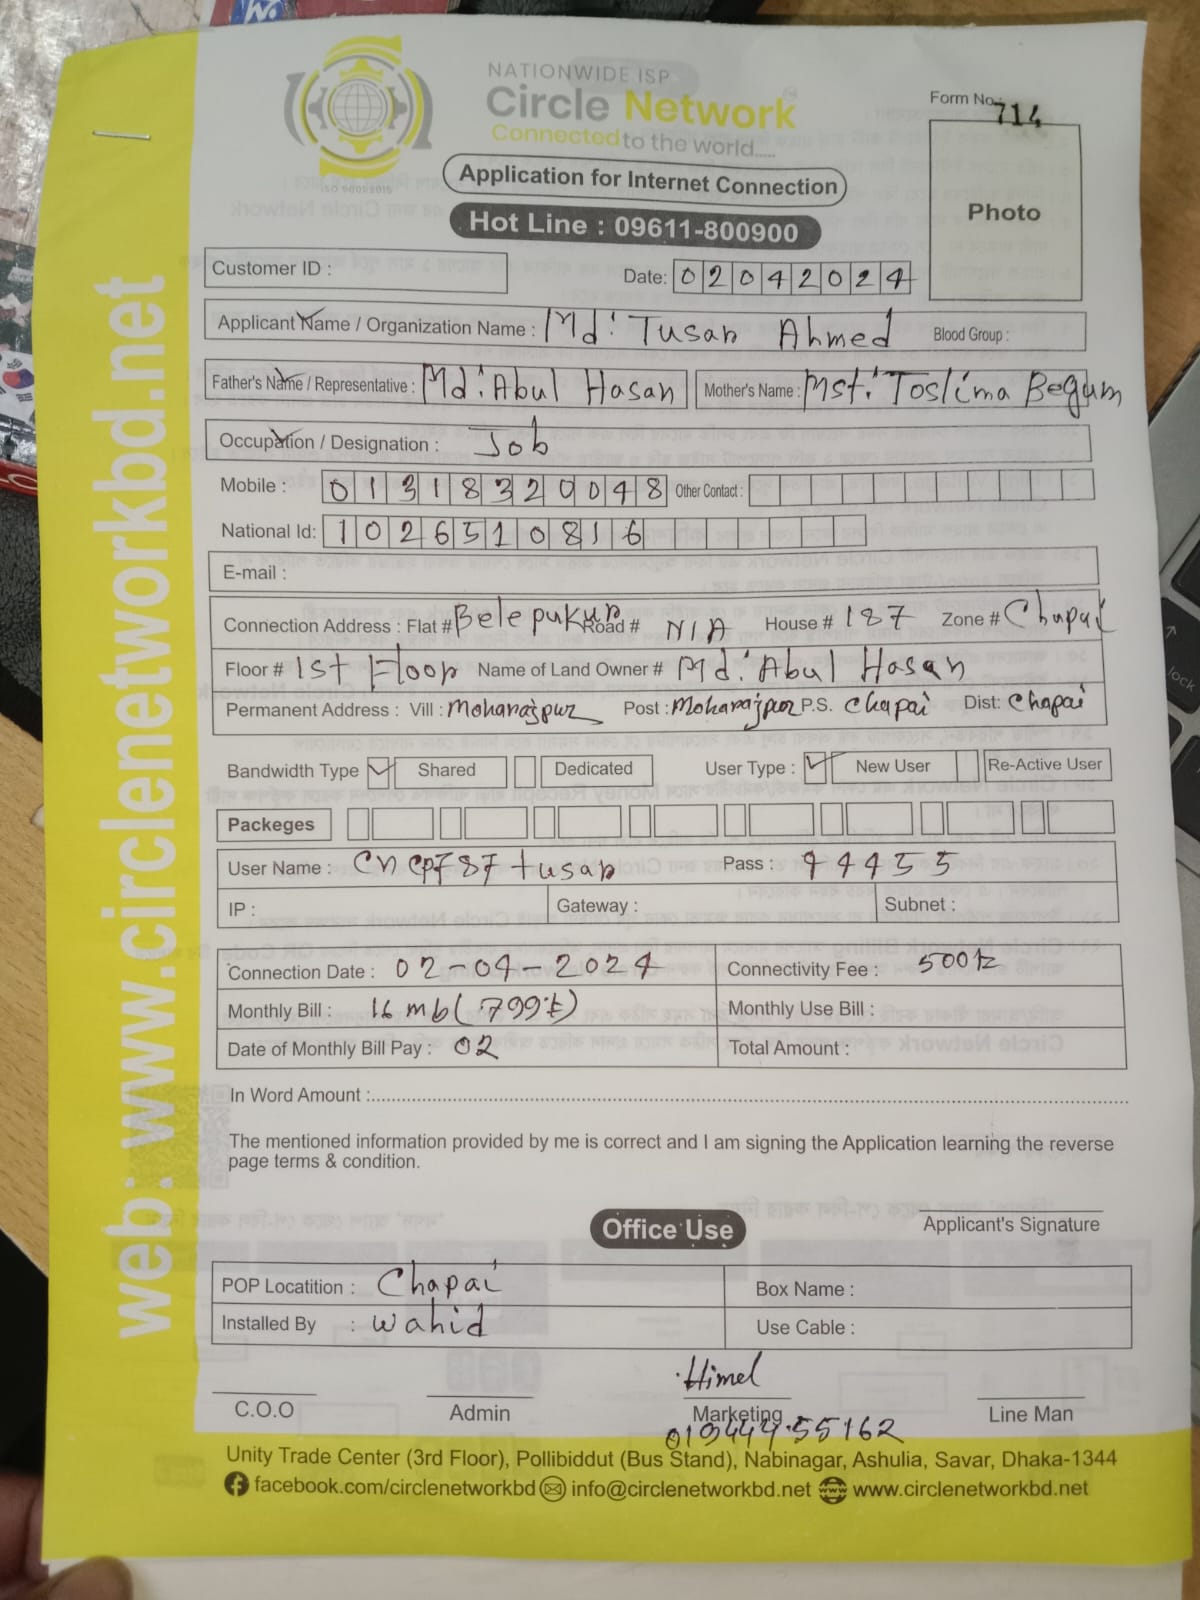 NATIONWIDE ISP
Circle Network
Connected to the world.....
ISO 9001:2015
Application for Internet Connection
Hot Line : 09611-800900
Form No.: 714
Photo
web: www.circlenetworkbd.net
Customer ID :
Date: 02042024
Applicant Name / Organization Name : Md: Tusar Ahmed Blood Group :
Father's Name / Representative : Md: Abul Hasan Mother's Name : Mst: Toslima Begum
Occupation / Designation : Job
Mobile : 01318320048 Other Contact :
National Id: 1026510816
E-mail :
Connection Address : Flat # Belepukur Road # N/A House # 187 Zone # Chapai
Floor # 1st Floor Name of Land Owner # Md: Abul Hasan
Permanent Address : Vill : Moharajpur Post : Moharajpur P.S. Chapai Dist: Chapai
Bandwidth Type Shared Dedicated User Type : New User Re-Active User
Packeges
User Name : tusar Pass : 44455
IP : Gateway : Subnet :
Connection Date : 02-04-2024 Connectivity Fee : 500
Monthly Bill : 16 mb (799 Monthly Use Bill :
Date of Monthly Bill Pay : 02 Total Amount :
In Word Amount :
The mentioned information provided by me is correct and I am signing the Application learning the reverse
page terms & condition.
Applicant's Signature
Office Use
POP Locatition : Chapai Box Name :
Installed By : Wahid Use Cable :
Himel
C.O.O Admin Marketing Line Man
Unity Trade Center (3rd Floor), Pollibiddut (Bus Stand), Nabinagar, Ashulia, Savar, Dhaka-1344
facebook.com/circlenetworkbd info@circlenetworkbd.net www.circlenetworkbd.net
lock